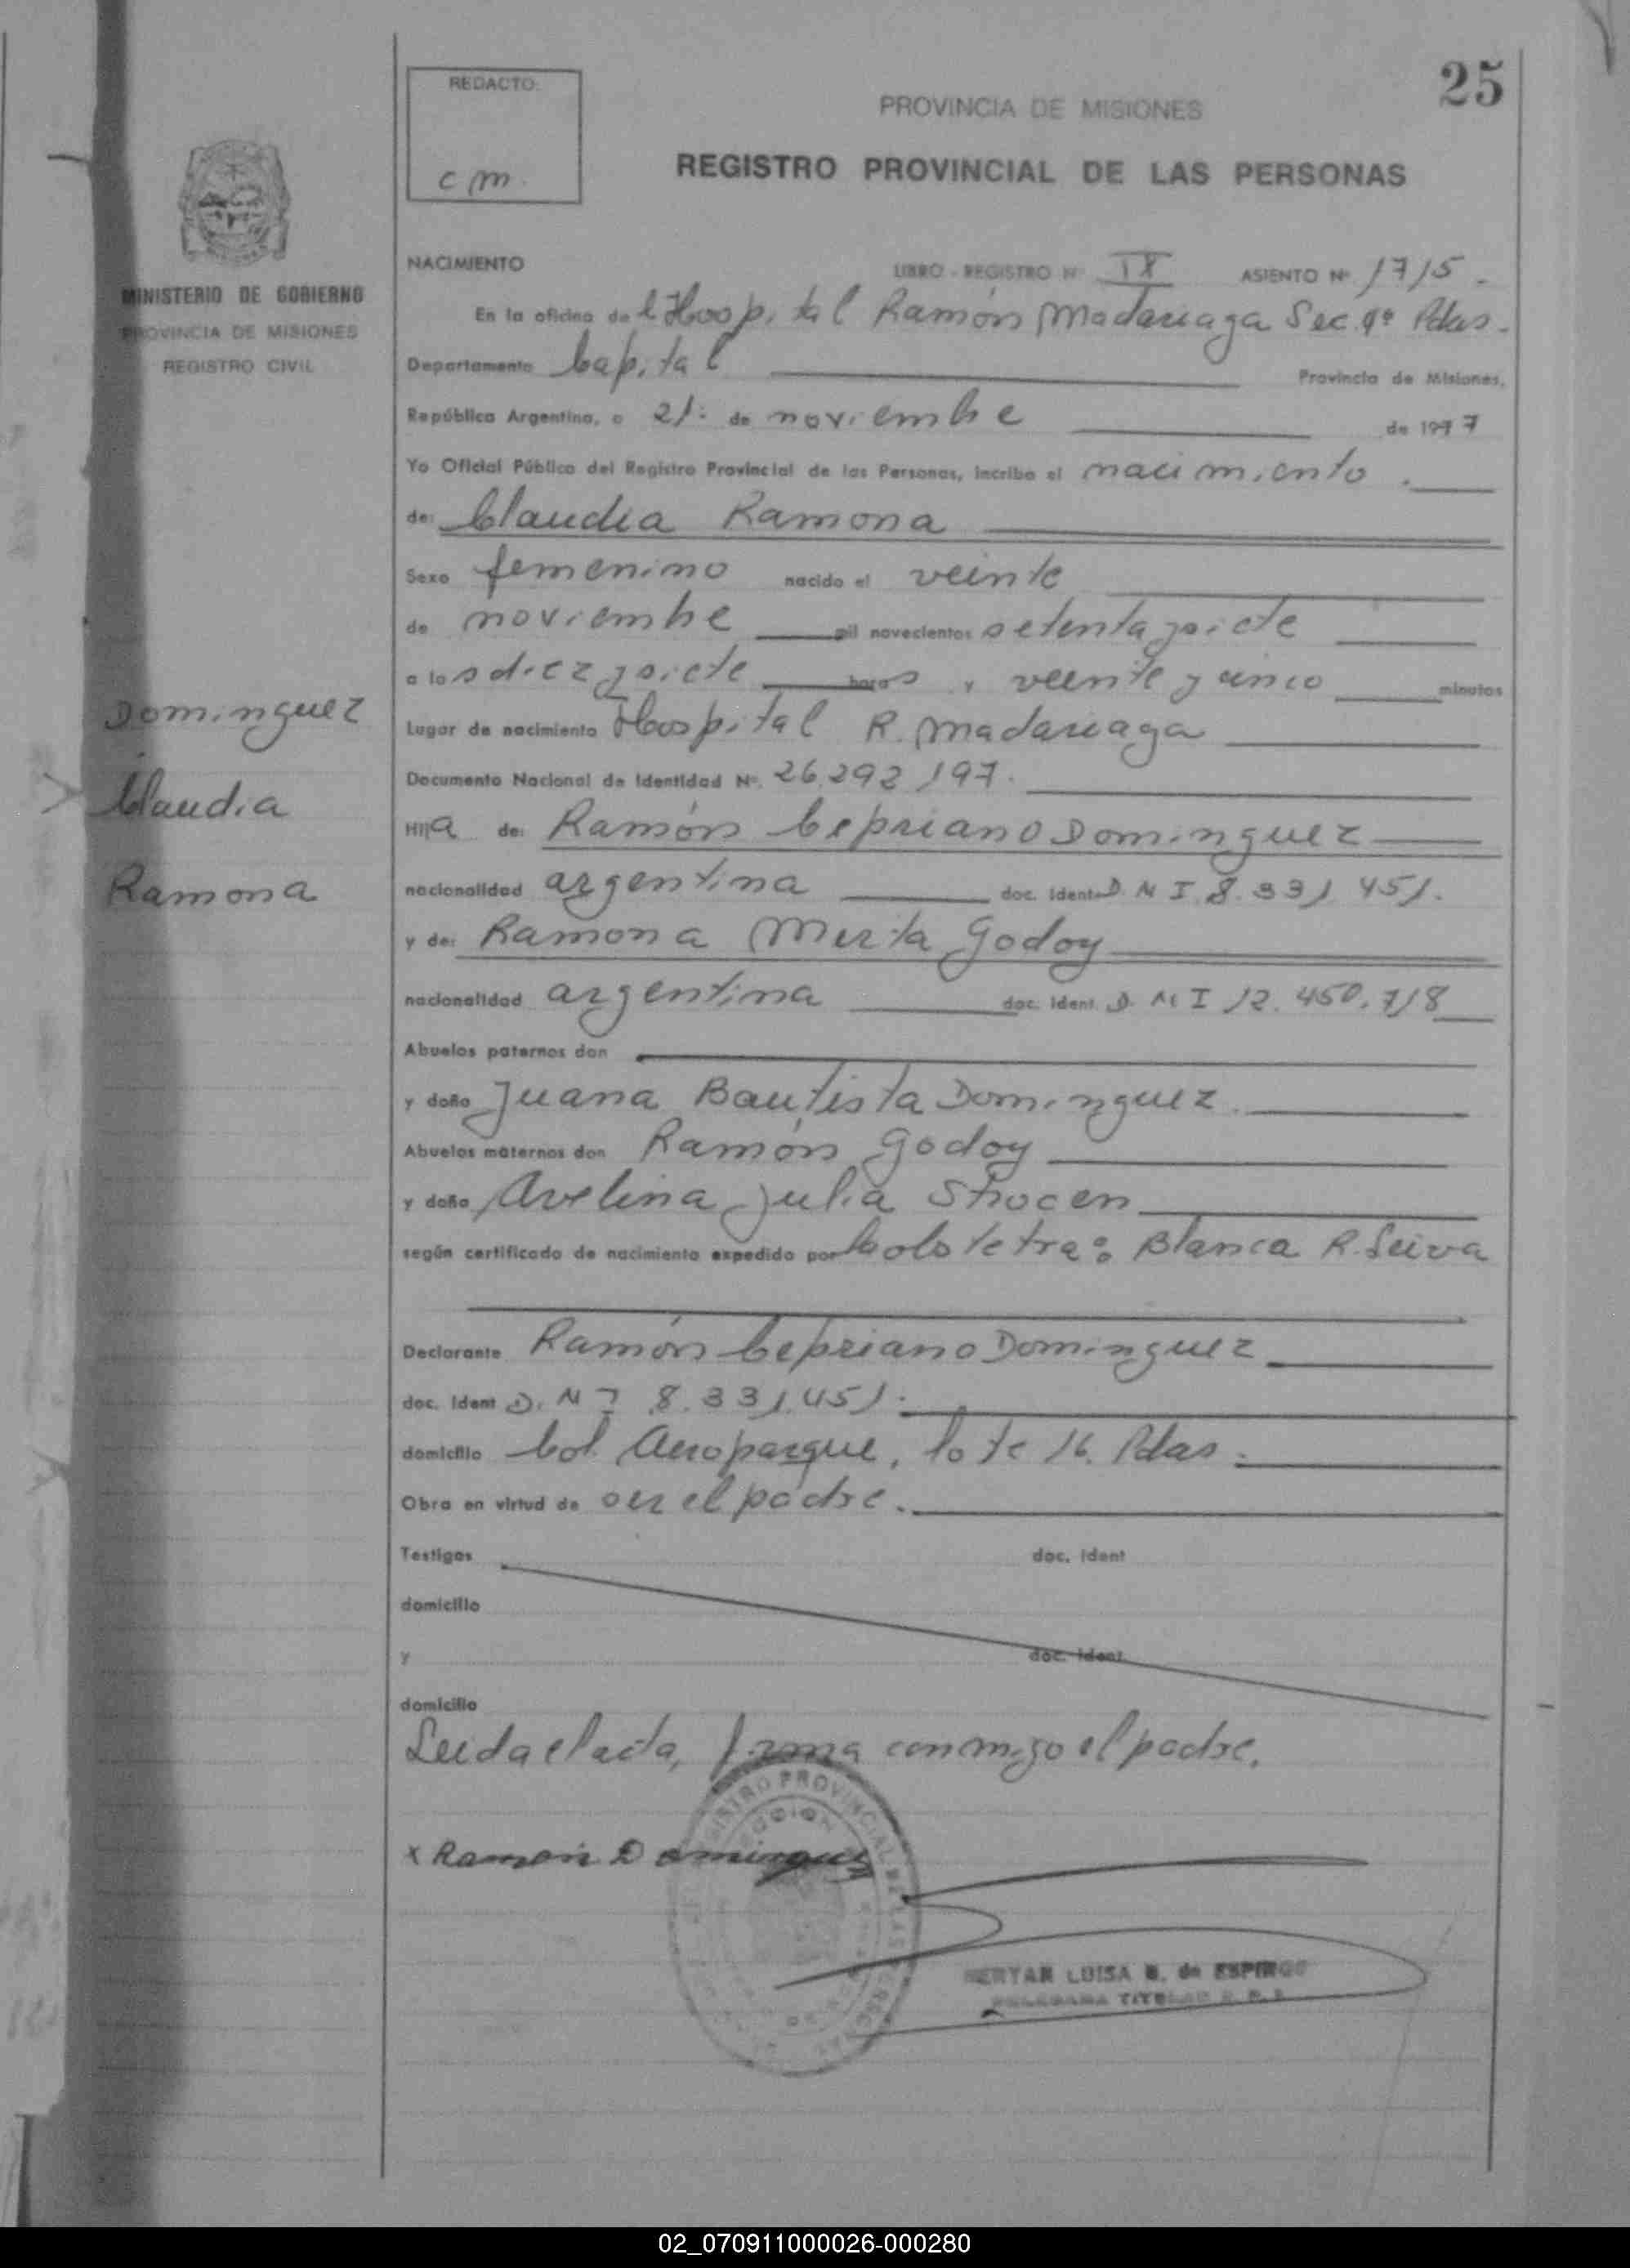 25
REDACTO:
cm.
PROVINCIA DE MISIONES
REGISTRO PROVINCIAL DE LAS PERSONAS
MINISTERIO DE GOBIERNO
PROVINCIA DE MISIONES
REGISTRO CIVIL
NACIMIENTO LIBRO - REGISTRO Nº IX ASIENTO Nº 1715.
En la oficina del Hospital Ramón Madariaga Sec. 9ª Pdas.
Departamento Capital Provincia de Misiones,
República Argentina, a 21: de noviembre de 1977
Yo Oficial Público del Registro Provincial de las Personas, incribo el nacimiento.
de: Claudia Ramona
Sexo femenino nacido el veinte
de noviembre mil novecientos setenta y siete
a las diez y siete horas y veinte y cinco minutos
Lugar de nacimiento Hospital R. Madariaga
Documento Nacional de Identidad Nº. 26.292.197.
Hija de: Ramón Cepriano Dominguez
nacionalidad argentina doc. Ident. D N I 8.331.451.
y de: Ramona Mirta Godoy
nacionalidad argentina doc. Ident. D. N I 12.450.718
Abuelos paternos don
y doña Juana Bautista Dominguez.
Abuelos maternos don Ramón Godoy
y doña Avelina Julia
según certificado de nacimiento expedido por la obstetra: Blanca R. Leiva
Declarante Ramón Cepriano Dominguez
doc. Ident D. N I 8.331.451.
domicilio Col. Aeroparque, lote 16. Pdas.
Obra en virtud de ser el padre.
Testigos doc. Ident
domicilio
y doc. Ident
domicilio
Leida el acta, firma conmigo el padre.
x Ramon Dominguez
REGISTRO PROVINCIAL DE LAS PERSONAS
LUISA B. de ESPINDO
TITULAR
Dominguez
Claudia
Ramona
02_070911000026-000280